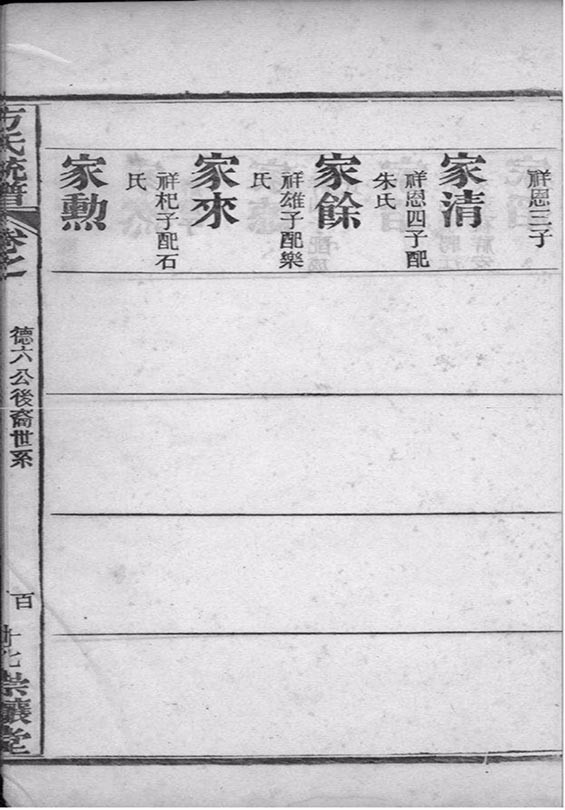 祥恩三子
家清
祥恩四子配
朱氏
家餘
祥雄子配樂
氏
家來
祥杞子配石
氏
家勳
方氏統譜
卷之
德六公後裔世系
百
崇讓堂